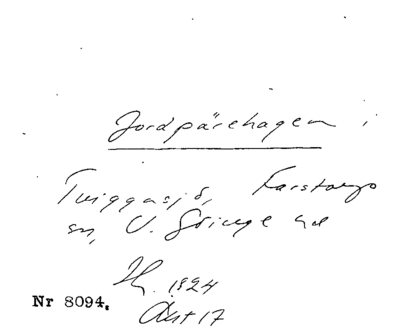 Jordpärehagen i
Tviggasjö, Farstorp
sn, V. Göinge hd
H. 1824
Akt 17
Nr 8094.